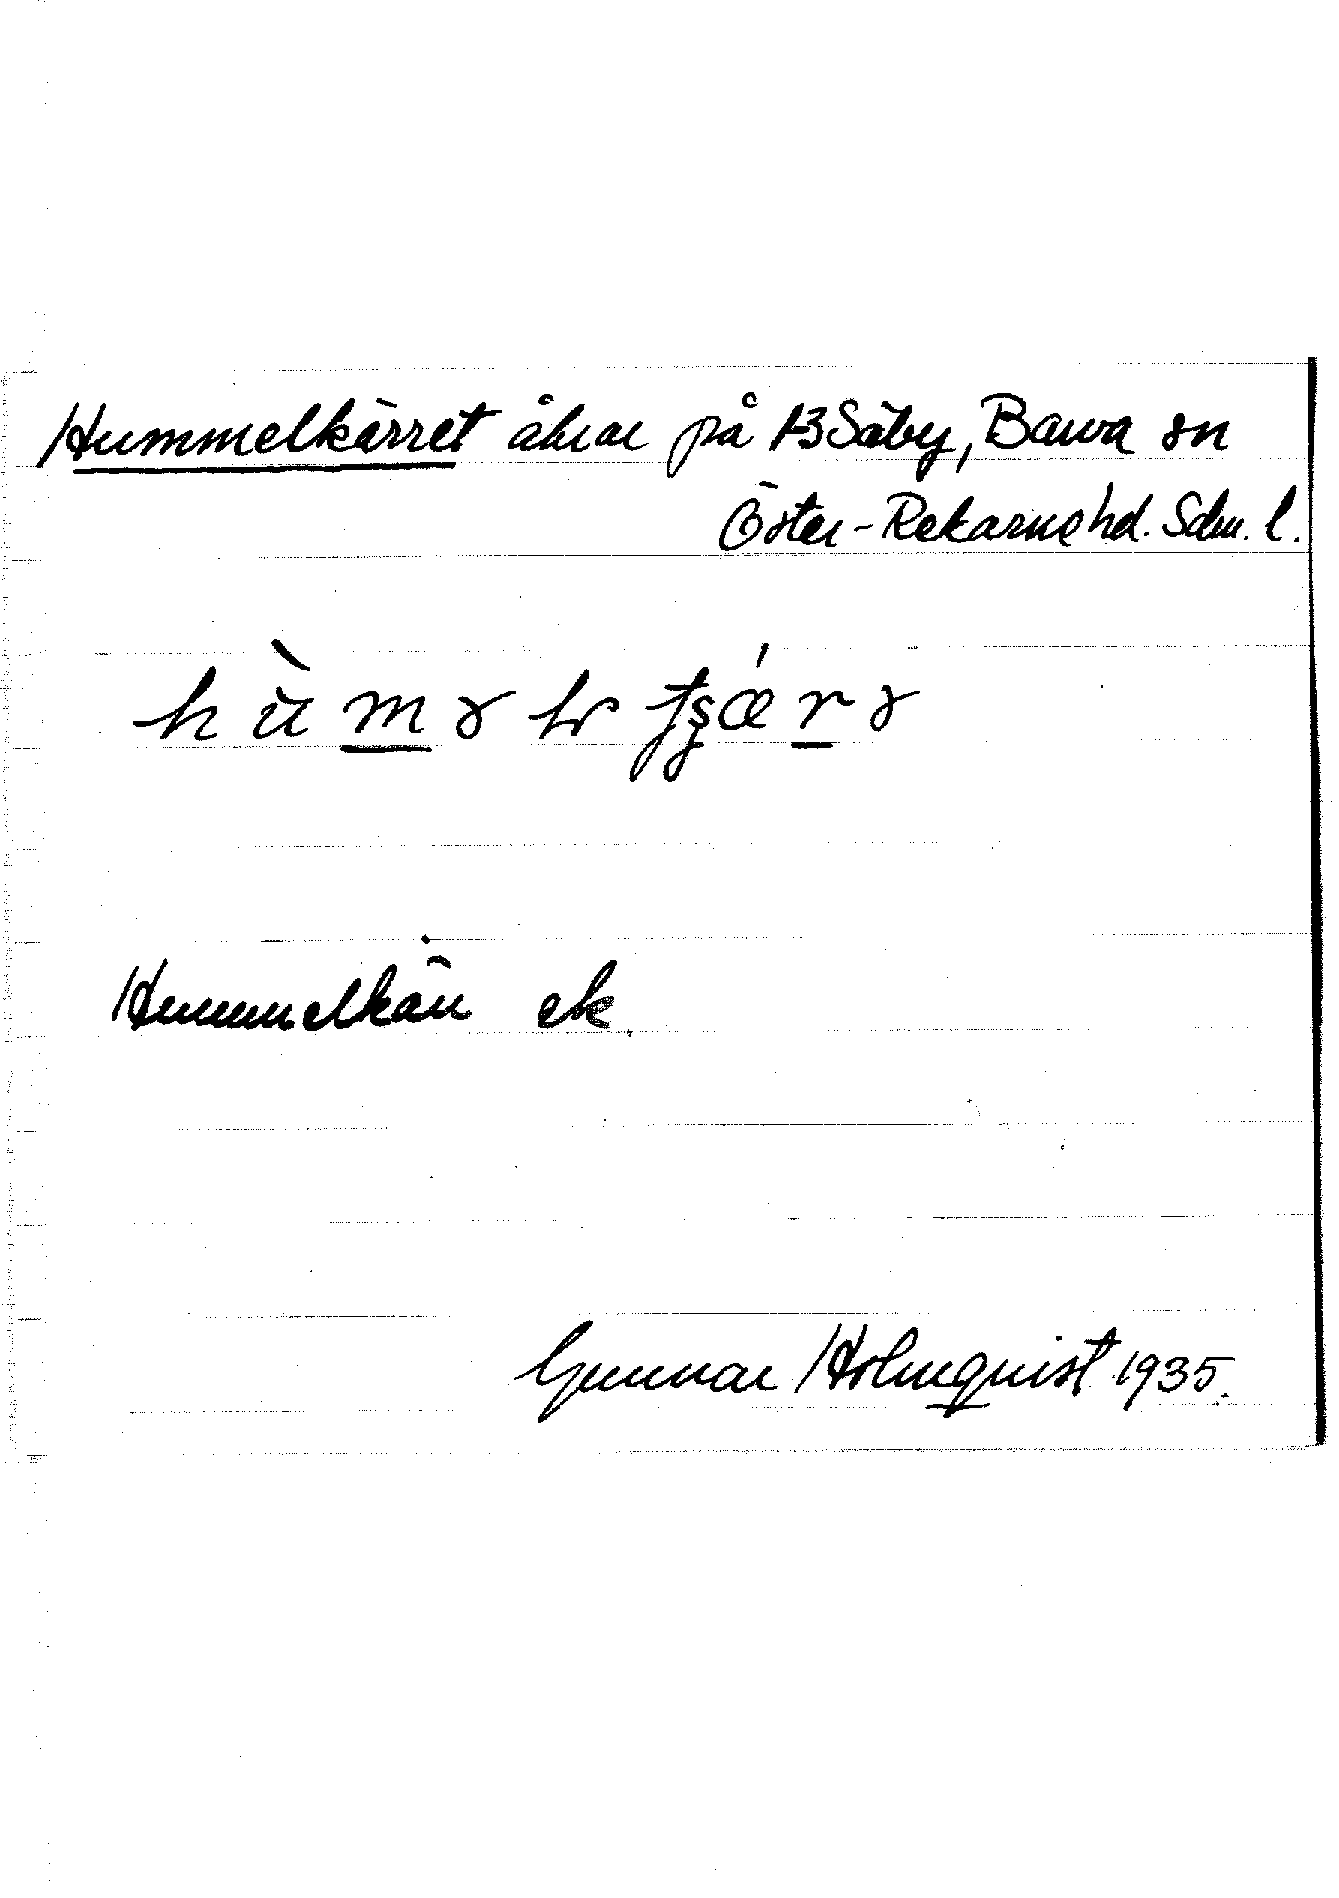 Hummelkärret åkrar på B Säby, Barva sn
Öster-Rekarne hd. Sdm. l.
Hummelkärr ek.
Gunnar Holmquist 1935.